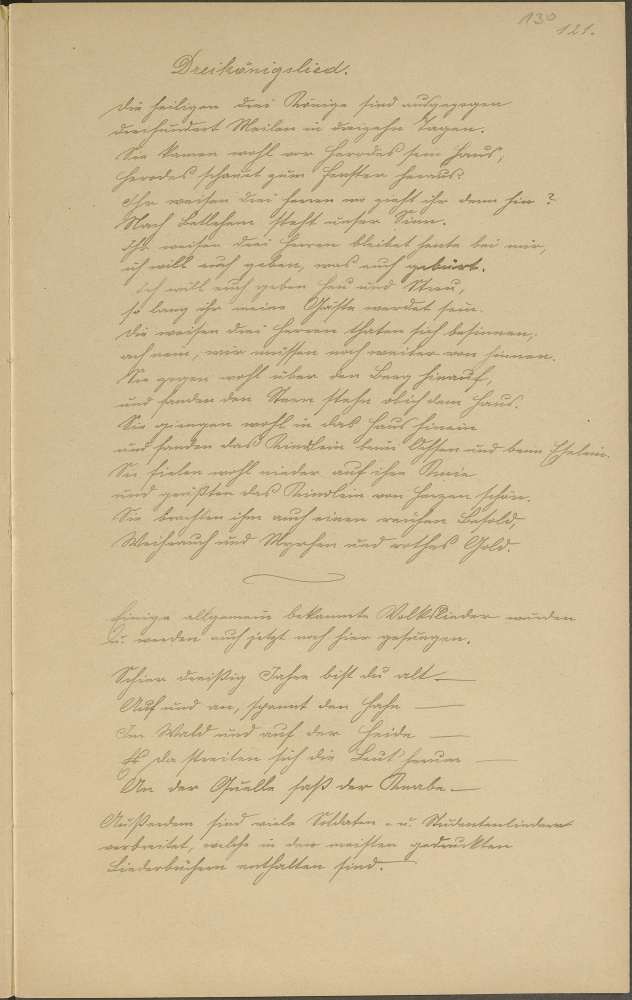 130
121.
Dreikönigslied.
Die heiligen drei Könige sind ausgezogen
dreihundert Meilen in dreizehn Tagen.
Sie kamen wohl vor Herodes sein Haus,
Herodes schauet zum Fenster heraus:
Ihr weisen drei Herren wo zieht ihr denn hin?
Nach Betlehem steht unser Sinn.
Ihr weisen drei Herren bleibet heute bei mir,
ich will euch geben, was euch gebürt.
Ich will euch geben Heu und Streu,
so lang ihr meine Gäste werdet sein.
Die weisen drei Herren thaten sich besinnen,
ach nein, wir müssen noch weiter von hinnen.
Sie zogen wohl über den Berg hinauf,
und fanden den Stern stehn ob dem Haus.
Sie giengen wohl in das Haus hinein
und fanden das Kindlein beim Ochsen und beim Eselein.
Sie fielen wohl nieder auf ihre Knie
und grüßten das Kindlein von Herzen schön.
Sie brachten ihm auch einen reichen Besold,
Weihrauch und Myrhen und rothes Gold.
Einige allgemein bekannte Volkslieder wurden
u. werden auch jetzt noch hier gesungen.
Schier dreißig Jahre bist du alt —
Auf und an, spannt den Hahn —
Im Wald und auf der Heide —
Es da streiten sich die Leut herum —
An der Quelle saß der Knabe —
Außerdem sind viele Soldaten- u. Studentenlieder
verbreitet, welche in den meisten gedruckten
Liederbüchern enthalten sind.